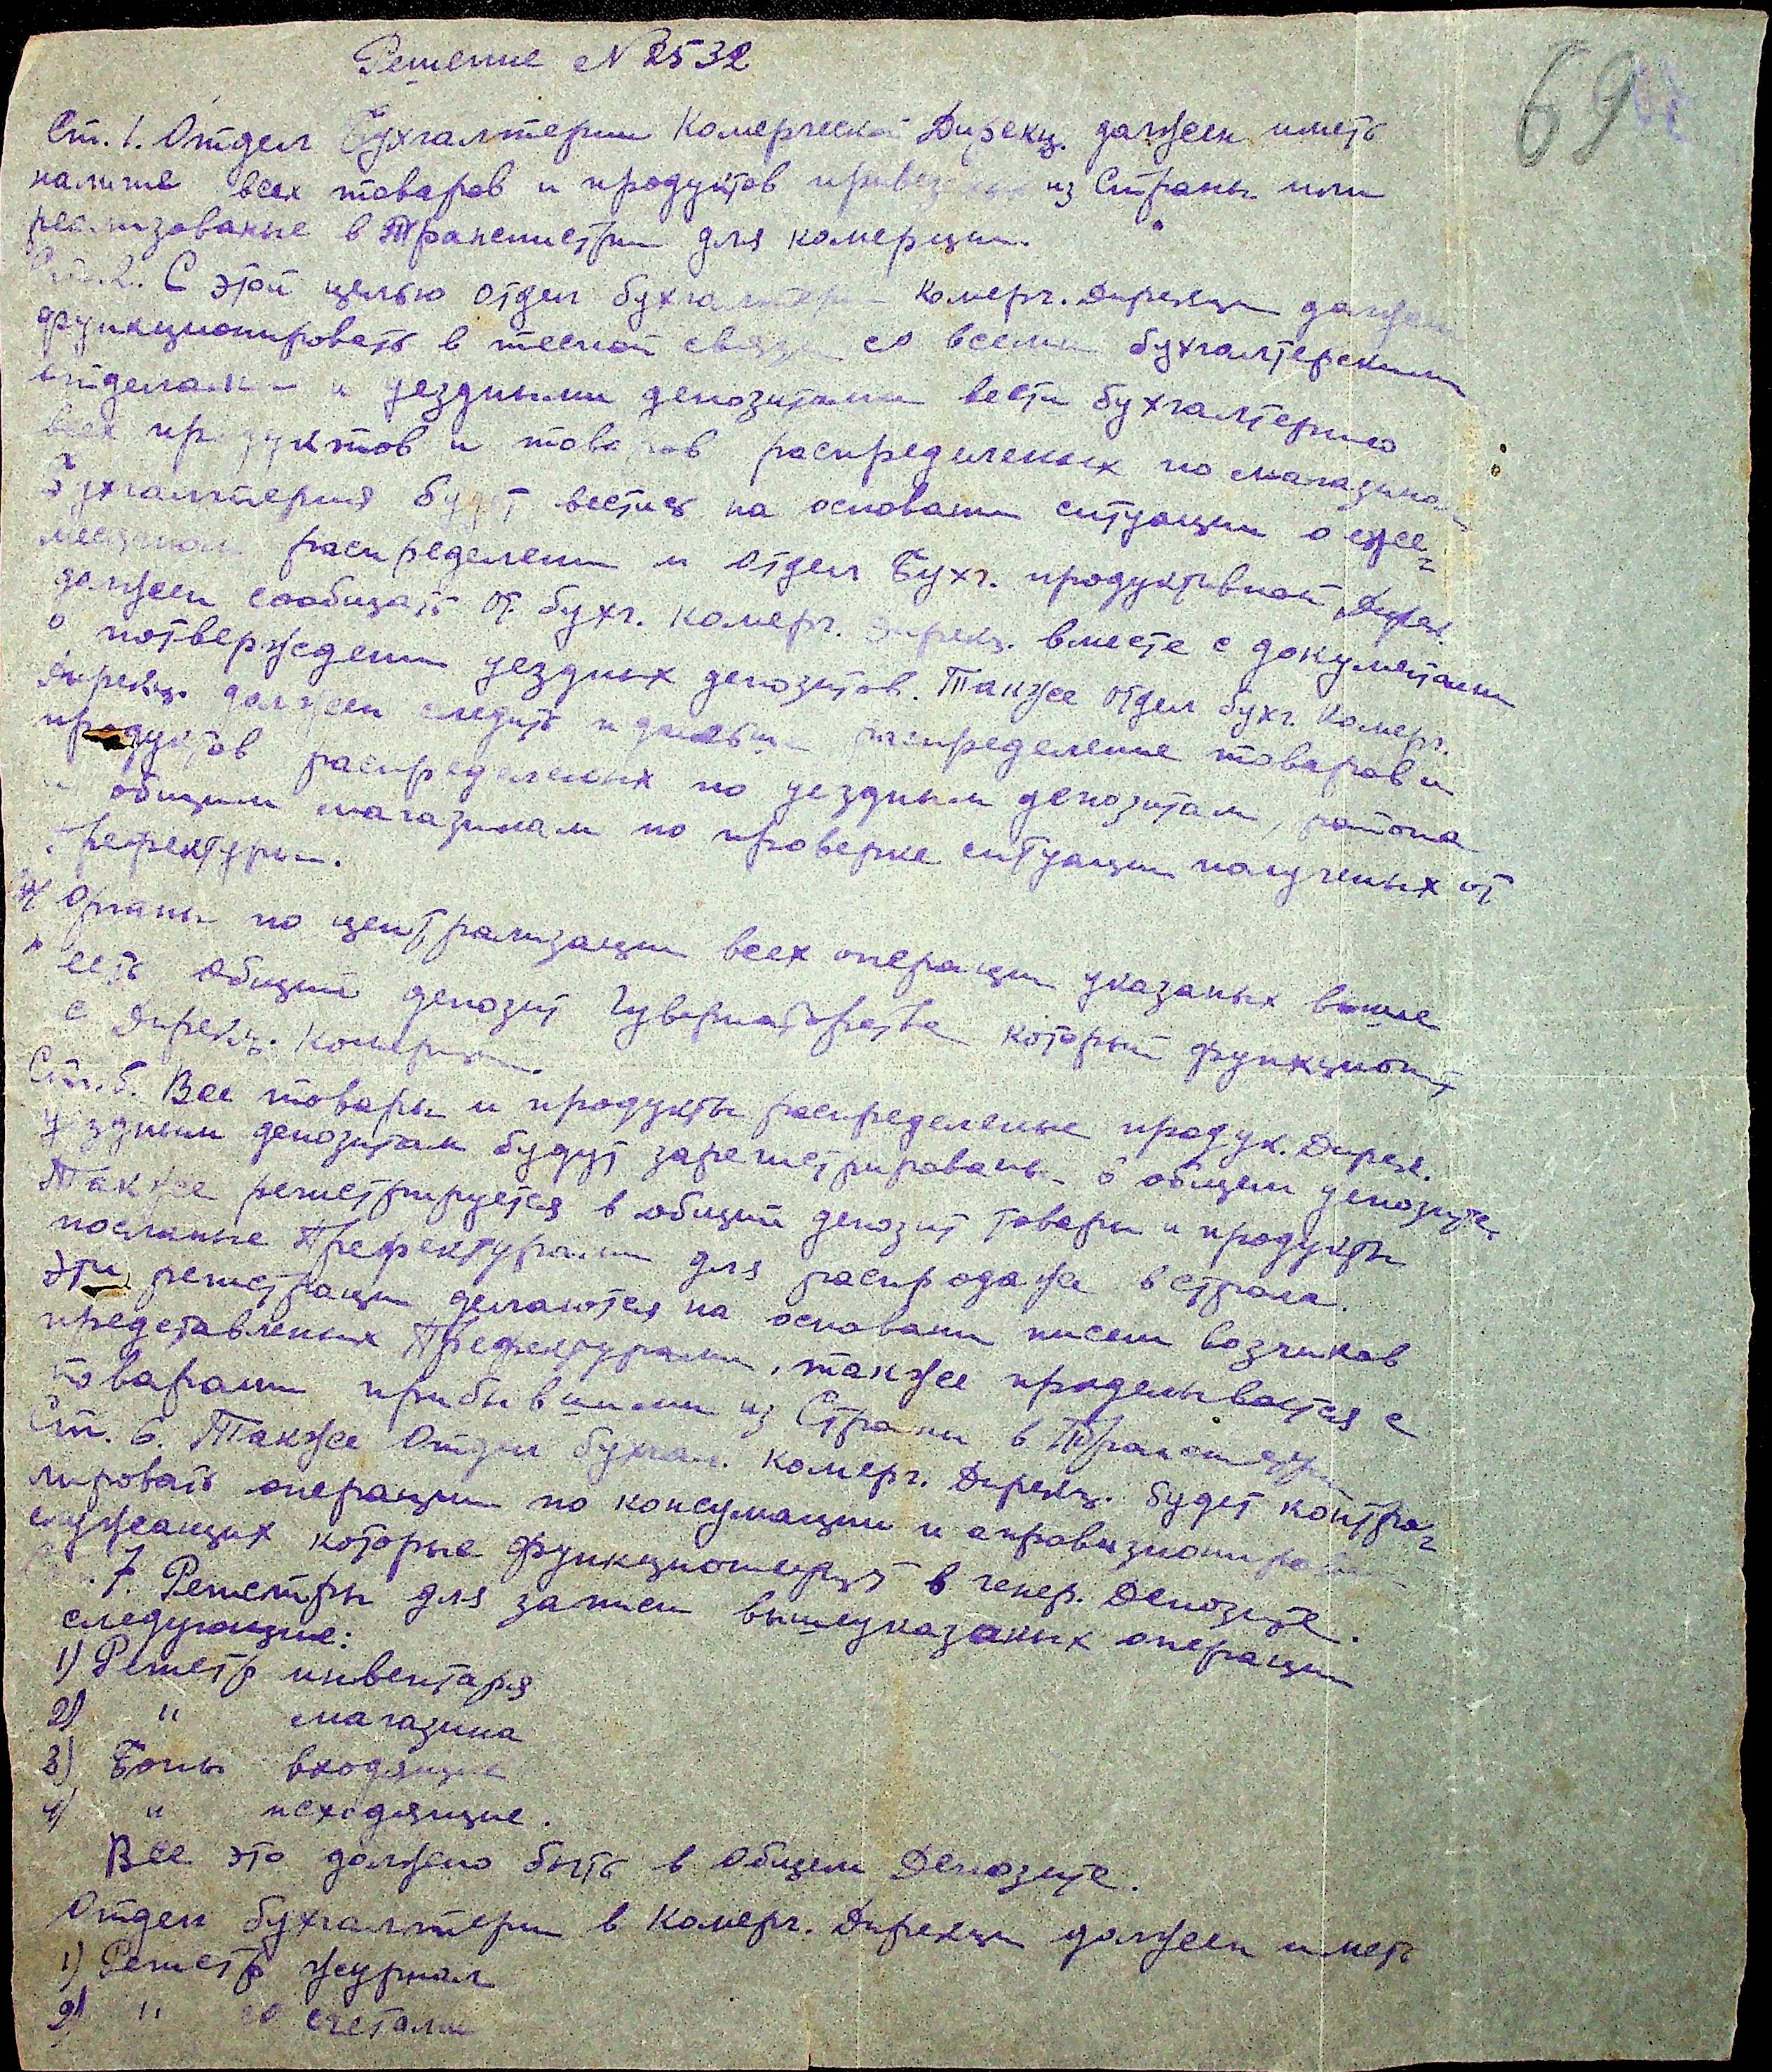 Решение № 2532
69
Ст. 1. Отдел Бухгалтерии Комерческой Дирекц. должен иметь
наличие всех товаров и продуктов привезеных из Страны или
реализованые в Транснистрии для комерции.
Ст. 2. С этой целью отдел бухгалтерии комерч. дирекции должен
функционировать в тесной связи со всеми бухгалтерскими
отделами и уездными депозитами вести бухгалтерию
всех продуктов и товаров распределеных по магазинам
Бухгалтерия будет вестись на основании ситуации о еже-
месячном распределении и отдел Бухг. продуктивной Дирек.
должен сообщать от. бухг. комерч. дирекц. вместе с документами
о потверждении уездных депозитов. Также отдел бухг. комерч.
дирекц. должен следить и распределение товаров и
продуктов распределеных по уездным депозитам, района
и общим магазинам по проверке ситуации полученых от
Префектуры.
Органы по централизации всех операции указаных выше
есть Общий депозит Губернаторства который функционит
с Дирекц. Комерции.
Ст. 5. Все товары и продукты распределеные продук. Дирек.
Уездным депозитам будут зарегистрированы в общем депозите
Также регистрируется в общий депозит товары и продукты
посланые Префектурами для распродажи в страна.
Эти регистрации делаются на основании писем возчиков
представленых Префектурами, также проделывается с
товарами прибывшими из Страны в Транснистрии
Ст. 6. Также Отдел бухгал. комерч. Дирекц. будет контро-
лировать операции по консумации и апровизионировании
служащих которые функционируют в генер. Депозите.
Ст. 7. Регистры для записи вышеуказаных операции
следующие:
1) Регистр инвентаря
2) " магазина
3) Боны входящие
4) " исходящие.
Все это должно быть в Общем Депозите.
Отдел бухгалтерии в Комерч. Дирекции должен иметь
1) Регистр журнал
2) " со счетами